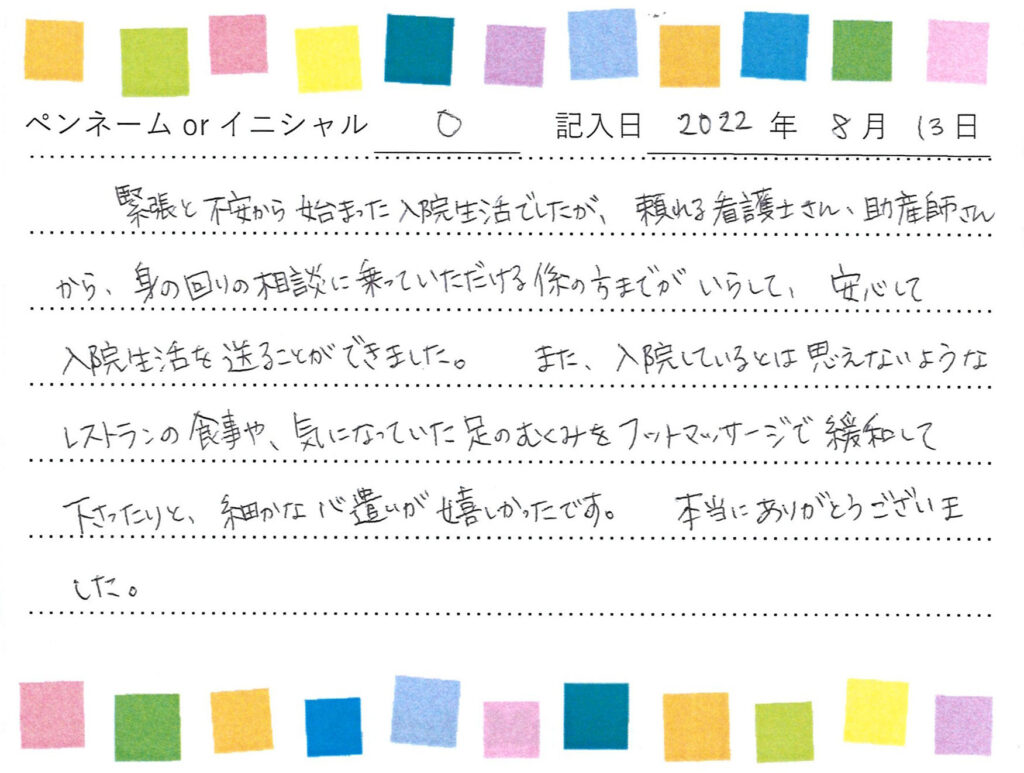 ペンネーム or イニシャル O 記入日 2022 年 8 月 13 日
緊張と不安から始まった入院生活でしたが、頼れる看護士さん、助産師さん
から、身の回りの相談に乗っていただける係の方までがいらして、安心して
入院生活を送ることができました。 また、入院しているとは思えないような
レストランの食事や、気になっていた足のむくみをフットマッサージで緩和して
下さったりと、細かな心遣いが嬉しかったです。 本当にありがとうございま
した。